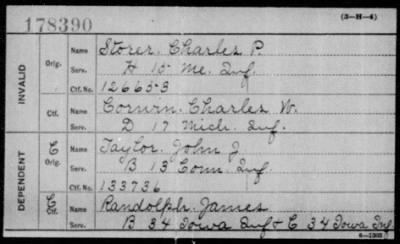 178390
(3-H-4)
INVALID
Orig.
Name Storer, Charles P.
Serv. H 15 Me. Inf.
Ctf. No. 126653
Ctf.
Name Corwin, Charles W.
Serv. D 17 Mich. Inf.
DEPENDENT
Orig.
Name Taylor, John J.
Serv. B 13 Conn. Inf.
Ctf. No. 133736
Ctf.
Name Randolph, James
Serv. B 34 Iowa Inf & C 34 Iowa Inf